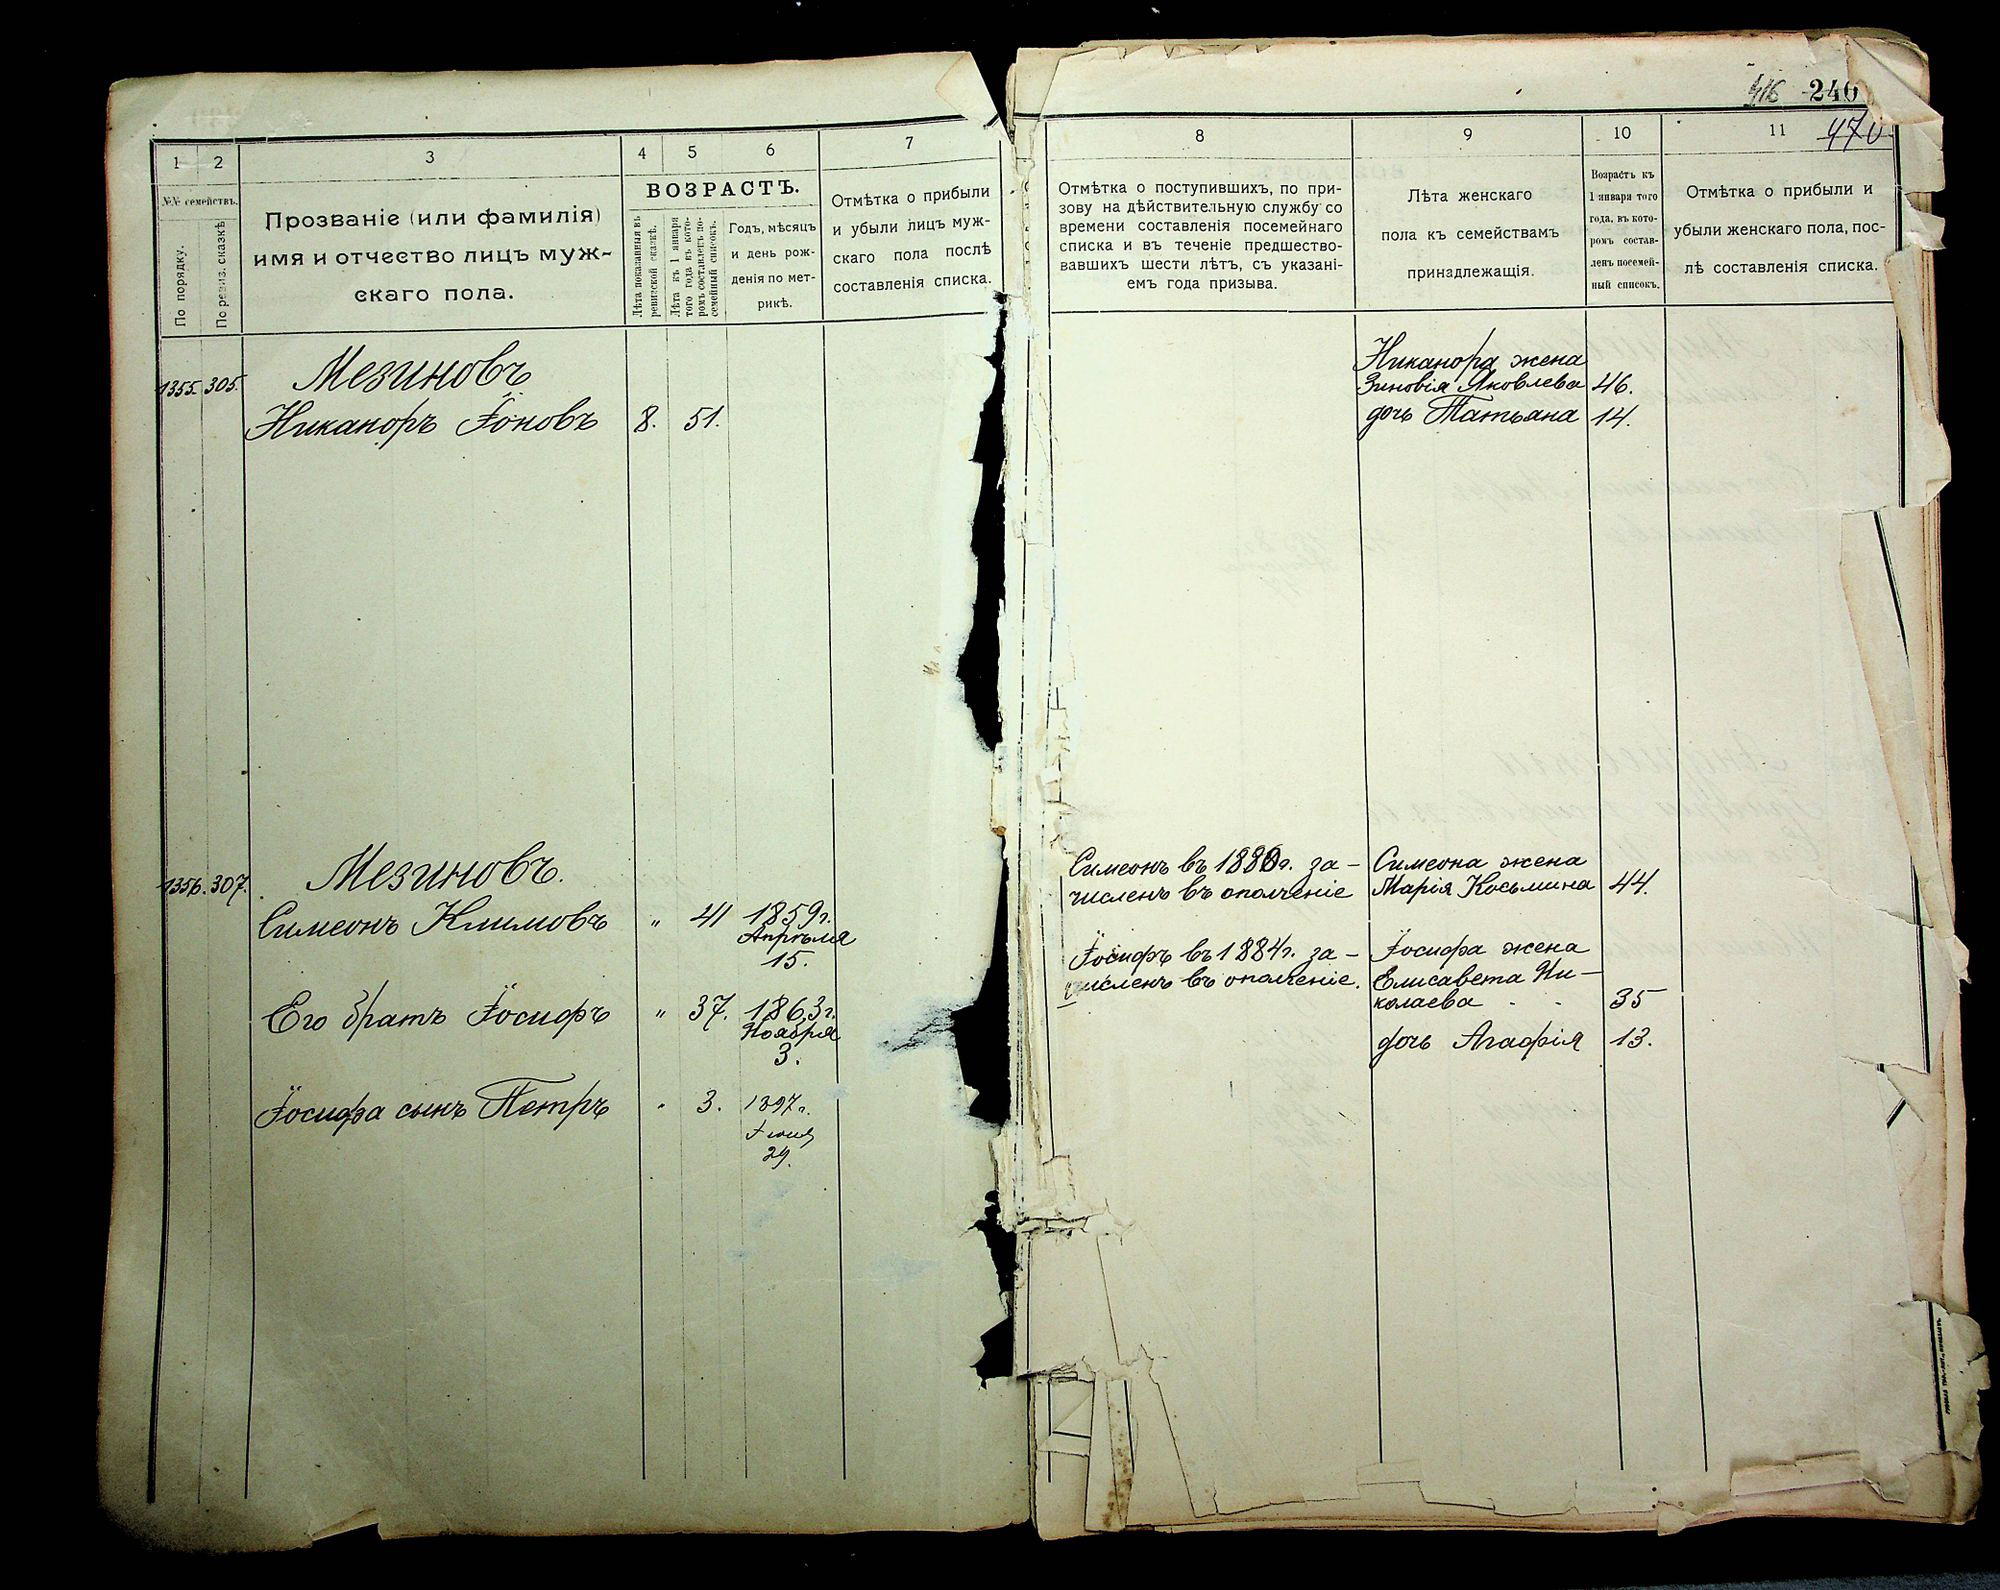 416 240
470
1 2 3 4 5 6 7
№№ семействъ.
По порядку.
По ревиз. сказкѣ
Прозваніе (или фамилія)
имя и отчество лицъ муж-
скаго пола.
ВОЗРАСТЪ.
Лѣта показанныя въ
ревизской сказкѣ.
Лѣта къ 1 января
того года въ кото-
ромъ составленъ по-
семейный списокъ.
Годъ, мѣсяцъ
и день рож-
денія по мет-
рикѣ.
Отмѣтка о прибыли
и убыли лицъ муж-
скаго пола послѣ
составленія списка.
8 9 10 11
Отмѣтка о поступившихъ, по при-
зову на дѣйствительную службу со
времени составленія посемейнаго
списка и въ теченіе предшество-
вавшихъ шести лѣтъ, съ указані-
емъ года призыва.
Лѣта женскаго
пола къ семействамъ
принадлежащія.
Возрастъ къ
1 января того
года, въ кото-
ромъ состав-
ленъ посемей-
ный списокъ.
Отмѣтка о прибыли и
убыли женскаго пола, пос-
лѣ составленія списка.
1355. 305. Мезиновъ
Никаноръ Іоновъ 8. 51.
Никанора жена
Зиновія Яковлева 46.
дочь Татьяна 14.
1356. 307. Мезиновъ.
Симеонъ Климовъ " 41 1859г.
Апрѣля
15.
Его братъ Іосифъ " 37. 1863г.
Ноября
3.
Іосифа сынъ Петръ " 3. 1897г.
Іюня
29.
Симеонъ въ 1880г. за-
численъ въ ополченіе
Іосифъ въ 1884г. за-
численъ въ ополченіе.
Симеона жена
Марія Косьмина 44.
Іосифа жена
Елисавета Ни-
колаева 35
дочь Агафія 13.